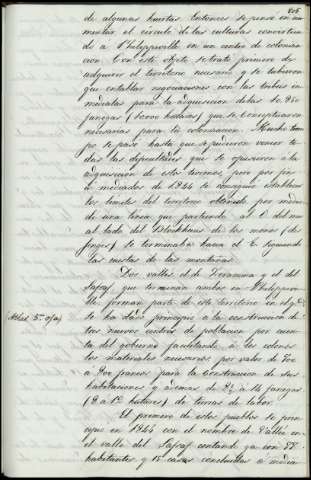 de algunas huertas. Entonces se pensó en au-
mentar el círculo de las culturas convirtien-
do a Philippeville en un centro de coloniza-
cion. Con este objeto se trató primero de
adquirir el territorio necesario y se tuvieron
que entablar negociaciones con las tribus in-
mediatas para la adquisicion de las
fanegas ( hectareas) que se conceptuaron
necesarias para la colonizacion. Mucho tiem-
po se pasó hasta que se pudieron vencer to-
das las dificultades que se opusieron á la
adquisicion de estos terrenos, pero por fin
á mediados de 1844 se consiguió establecer
los limites del territorio obtenido por medio
de una linea que partiendo al O. del mar
al lado del Blockhaus de los monos (des
singes) se terminaba hacia el E. siguiendo
las crestas de las montañas.
Dos valles el de Zeramna y el del
Safsaf que terminan ambos en Philippevi-
lle forman parte de este territorio en el q.e
se ha dado principio a la construccion de
tres nuevos centros de poblacion por cuen-
ta del gobierno facilitando á los colonos
los materiales necesarios por valor de
a francos para la construccion de sus
habitaciones y ademas de á 14 fanegas
( á hectareas) de tierras de labor.
El primero de estos pueblos se prin-
cipió en 1844 con el nombre de Vallée en
el valle del Safsaf contando ya con
habitantes y 15 casas construidas á media-